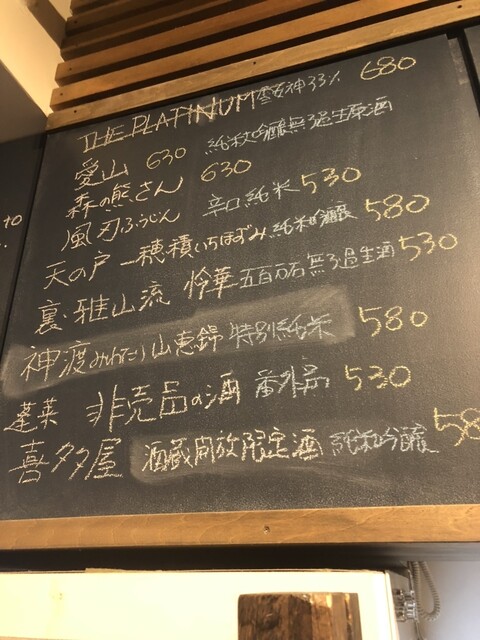 THE PLATINUM 雪女神33% 680
愛山 630 純米大吟醸無ろ過生原酒
森の熊さん 630
風刃ふうじん 辛口純米 530
天の戸 一穂積いちほずみ 純米吟醸 580
裏・雅山流 怜華 五百万石無ろ過生酒 530
神渡みわたり 山恵錦 特別純米 580
蓬莱 非売品の酒 番外品 530
喜多屋 酒蔵開放限定酒 純米吟醸 58
to